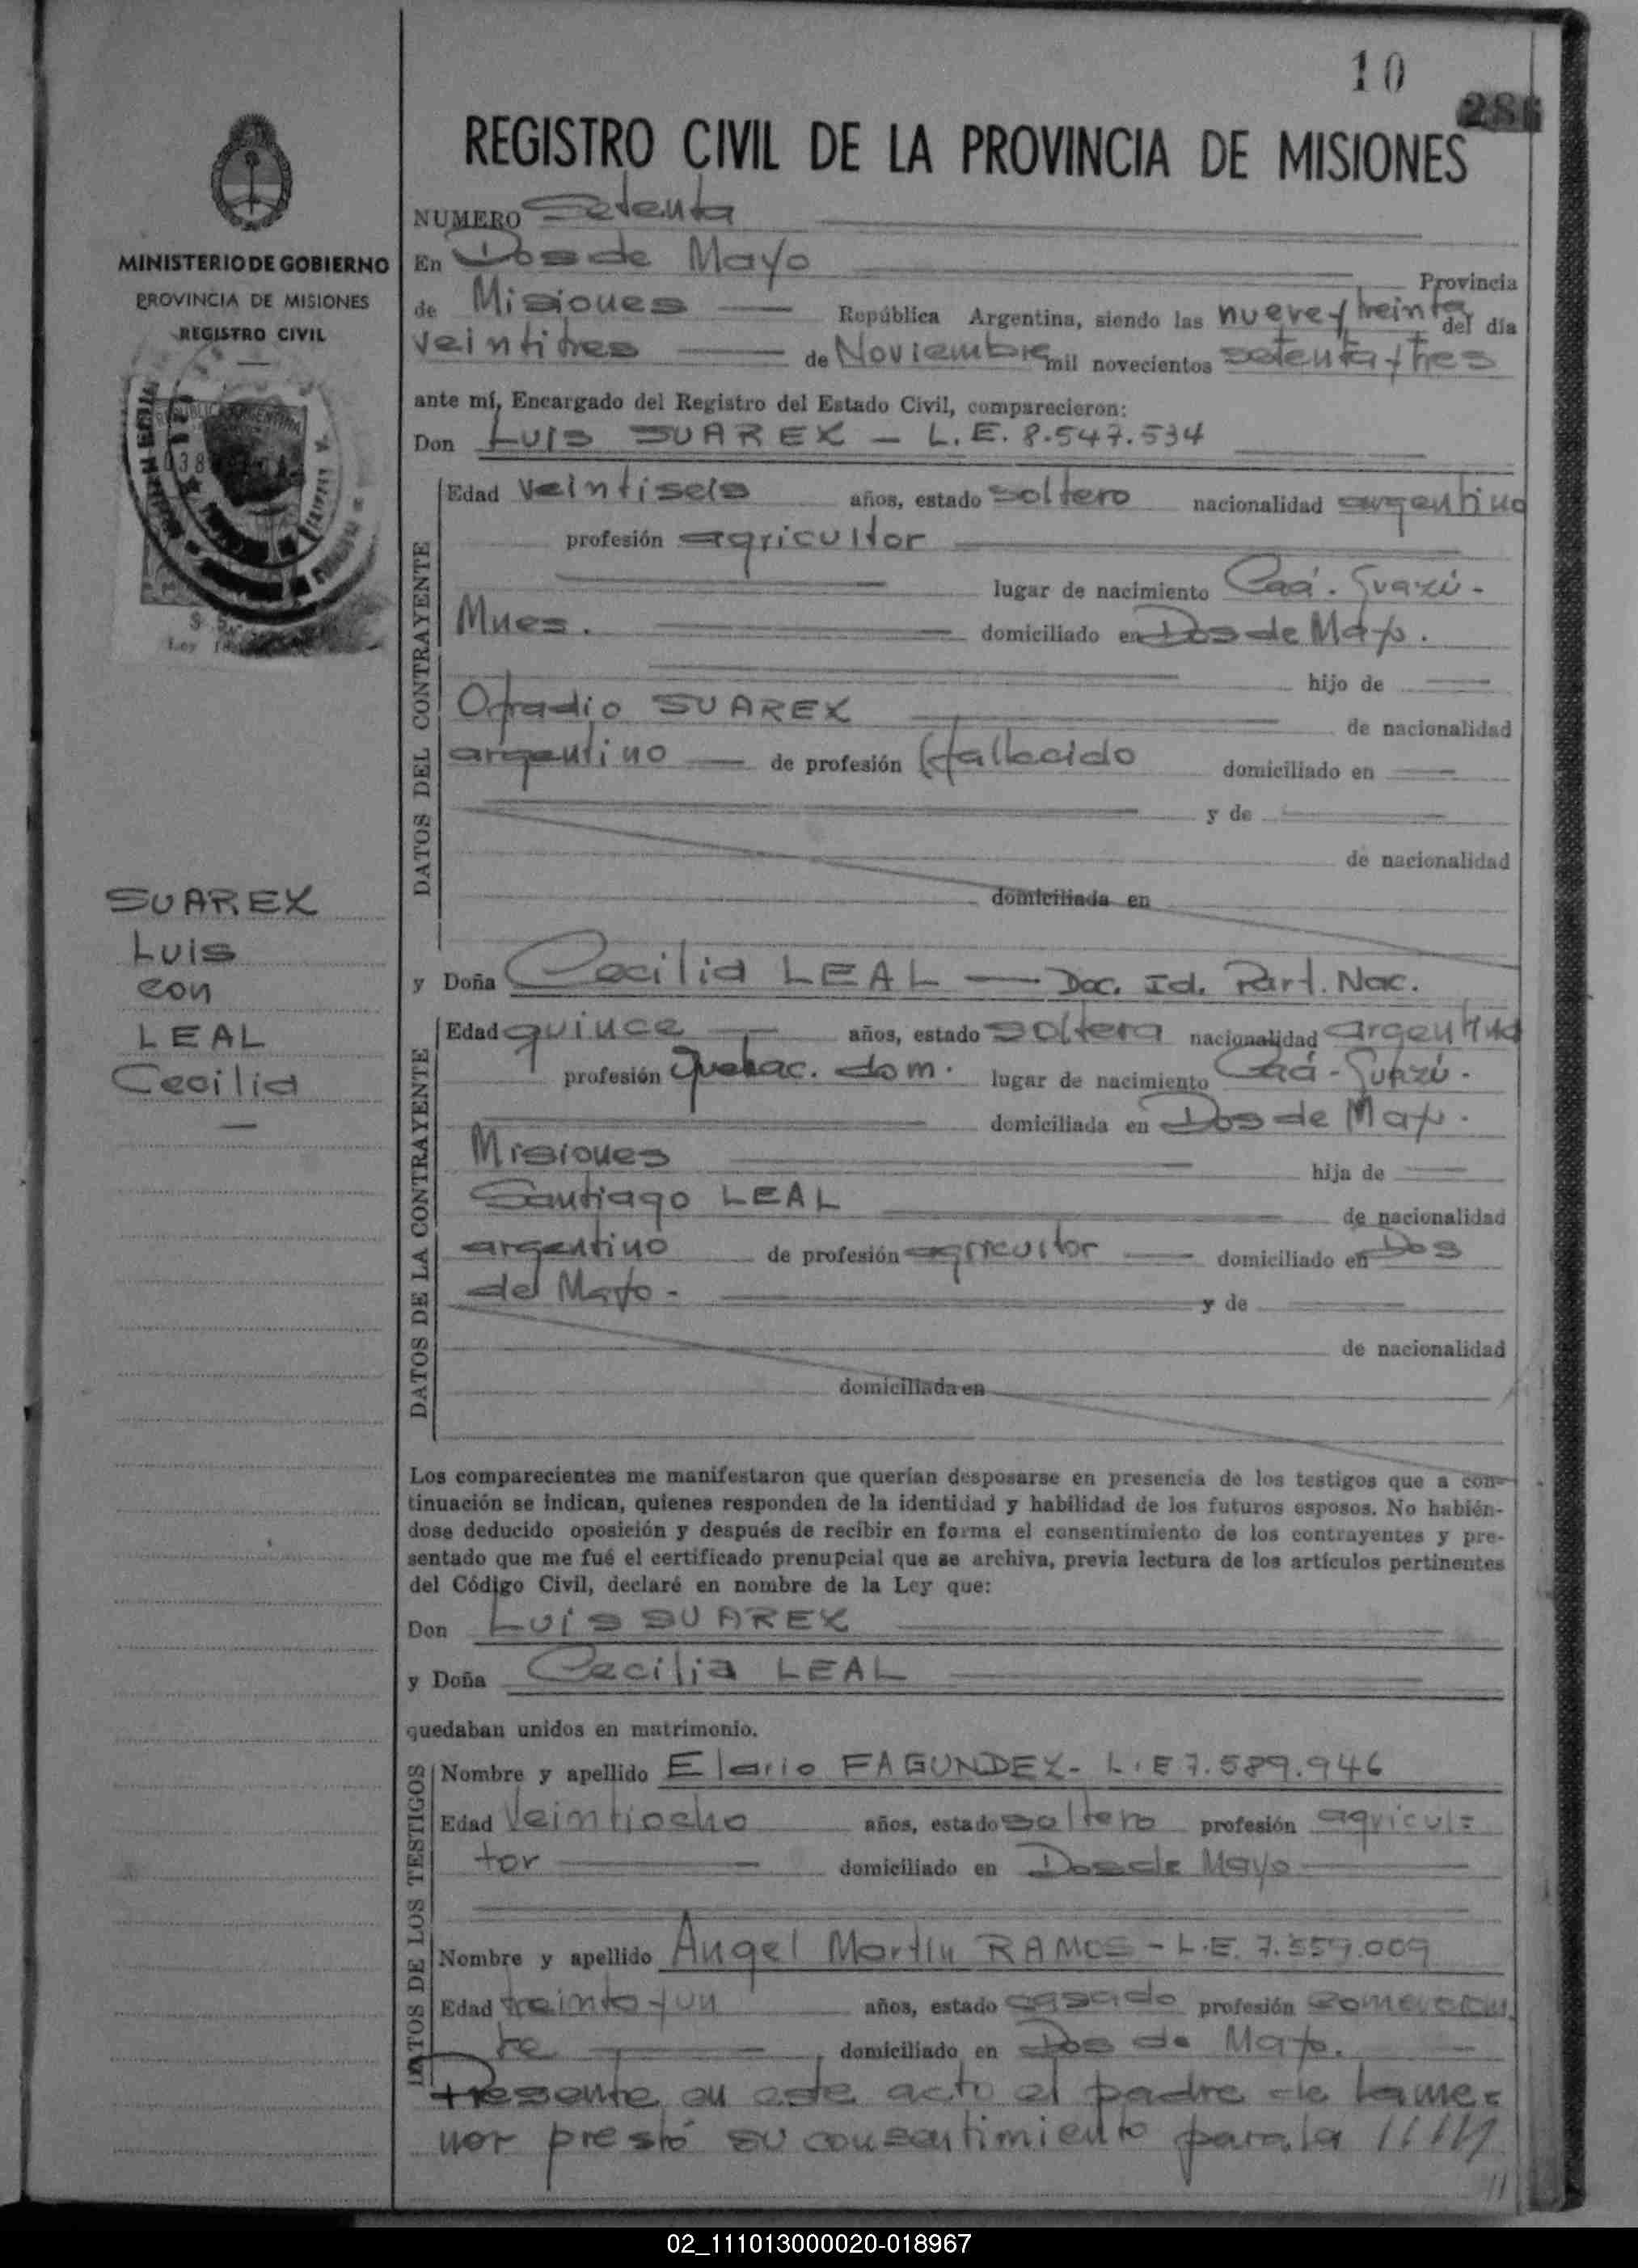 10
286
REGISTRO CIVIL DE LA PROVINCIA DE MISIONES
MINISTERIO DE GOBIERNO
PROVINCIA DE MISIONES
REGISTRO CIVIL
SUAREX
Luis
con
LEAL
Cecilia
NUMERO Setenta
En Dos de Mayo Provincia
de Misiones República Argentina, siendo las nueve y treinta del día
veintitres de Noviembre mil novecientos setenta y tres
ante mí, Encargado del Registro del Estado Civil, comparecieron:
Don Luis SUAREX - L.E. 8.547.534
DATOS DEL CONTRAYENTE
Edad veintiseis años, estado soltero nacionalidad argentino
profesión agricultor
lugar de nacimiento Caá-Guazú-
Mnes. domiciliado en Dos de Mayo.
hijo de
Ofradio SUAREX de nacionalidad
argentino de profesión (fallecido domiciliado en
y de
de nacionalidad
domiciliada en
y Doña Cecilia LEAL — Doc. Id. Part. Nac.
DATOS DE LA CONTRAYENTE
Edad quince años, estado soltera nacionalidad argentina
profesión Quehac. dom. lugar de nacimiento Caá-Guazú-
domiciliada en Dos de Mayo.
Misiones hija de
Santiago LEAL de nacionalidad
argentino de profesión agricultor domiciliado en Dos
del Mayo- y de
de nacionalidad
domiciliada en
Los comparecientes me manifestaron que querían desposarse en presencia de los testigos que a con-
tinuación se indican, quienes responden de la identidad y habilidad de los futuros esposos. No habién-
dose deducido oposición y después de recibir en forma el consentimiento de los contrayentes y pre-
sentado que me fué el certificado prenupcial que se archiva, previa lectura de los artículos pertinentes
del Código Civil, declaré en nombre de la Ley que:
Don Luis SUAREX
y Doña Cecilia LEAL
quedaban unidos en matrimonio.
DATOS DE LOS TESTIGOS
Nombre y apellido Elario FAGUNDEX- L.E 7.589.946
Edad Veintiocho años, estado soltero profesión agricul=
tor domiciliado en Dos de Mayo
Nombre y apellido Angel Martin RAMOS - L.E. 7.559.009
Edad treinta y un años, estado casado profesión comercian
te domiciliado en Dos de Mayo.
Presente en este acto el padre de la me=
nor prestó su consentimiento para la /////
//
02_111013000020-018967